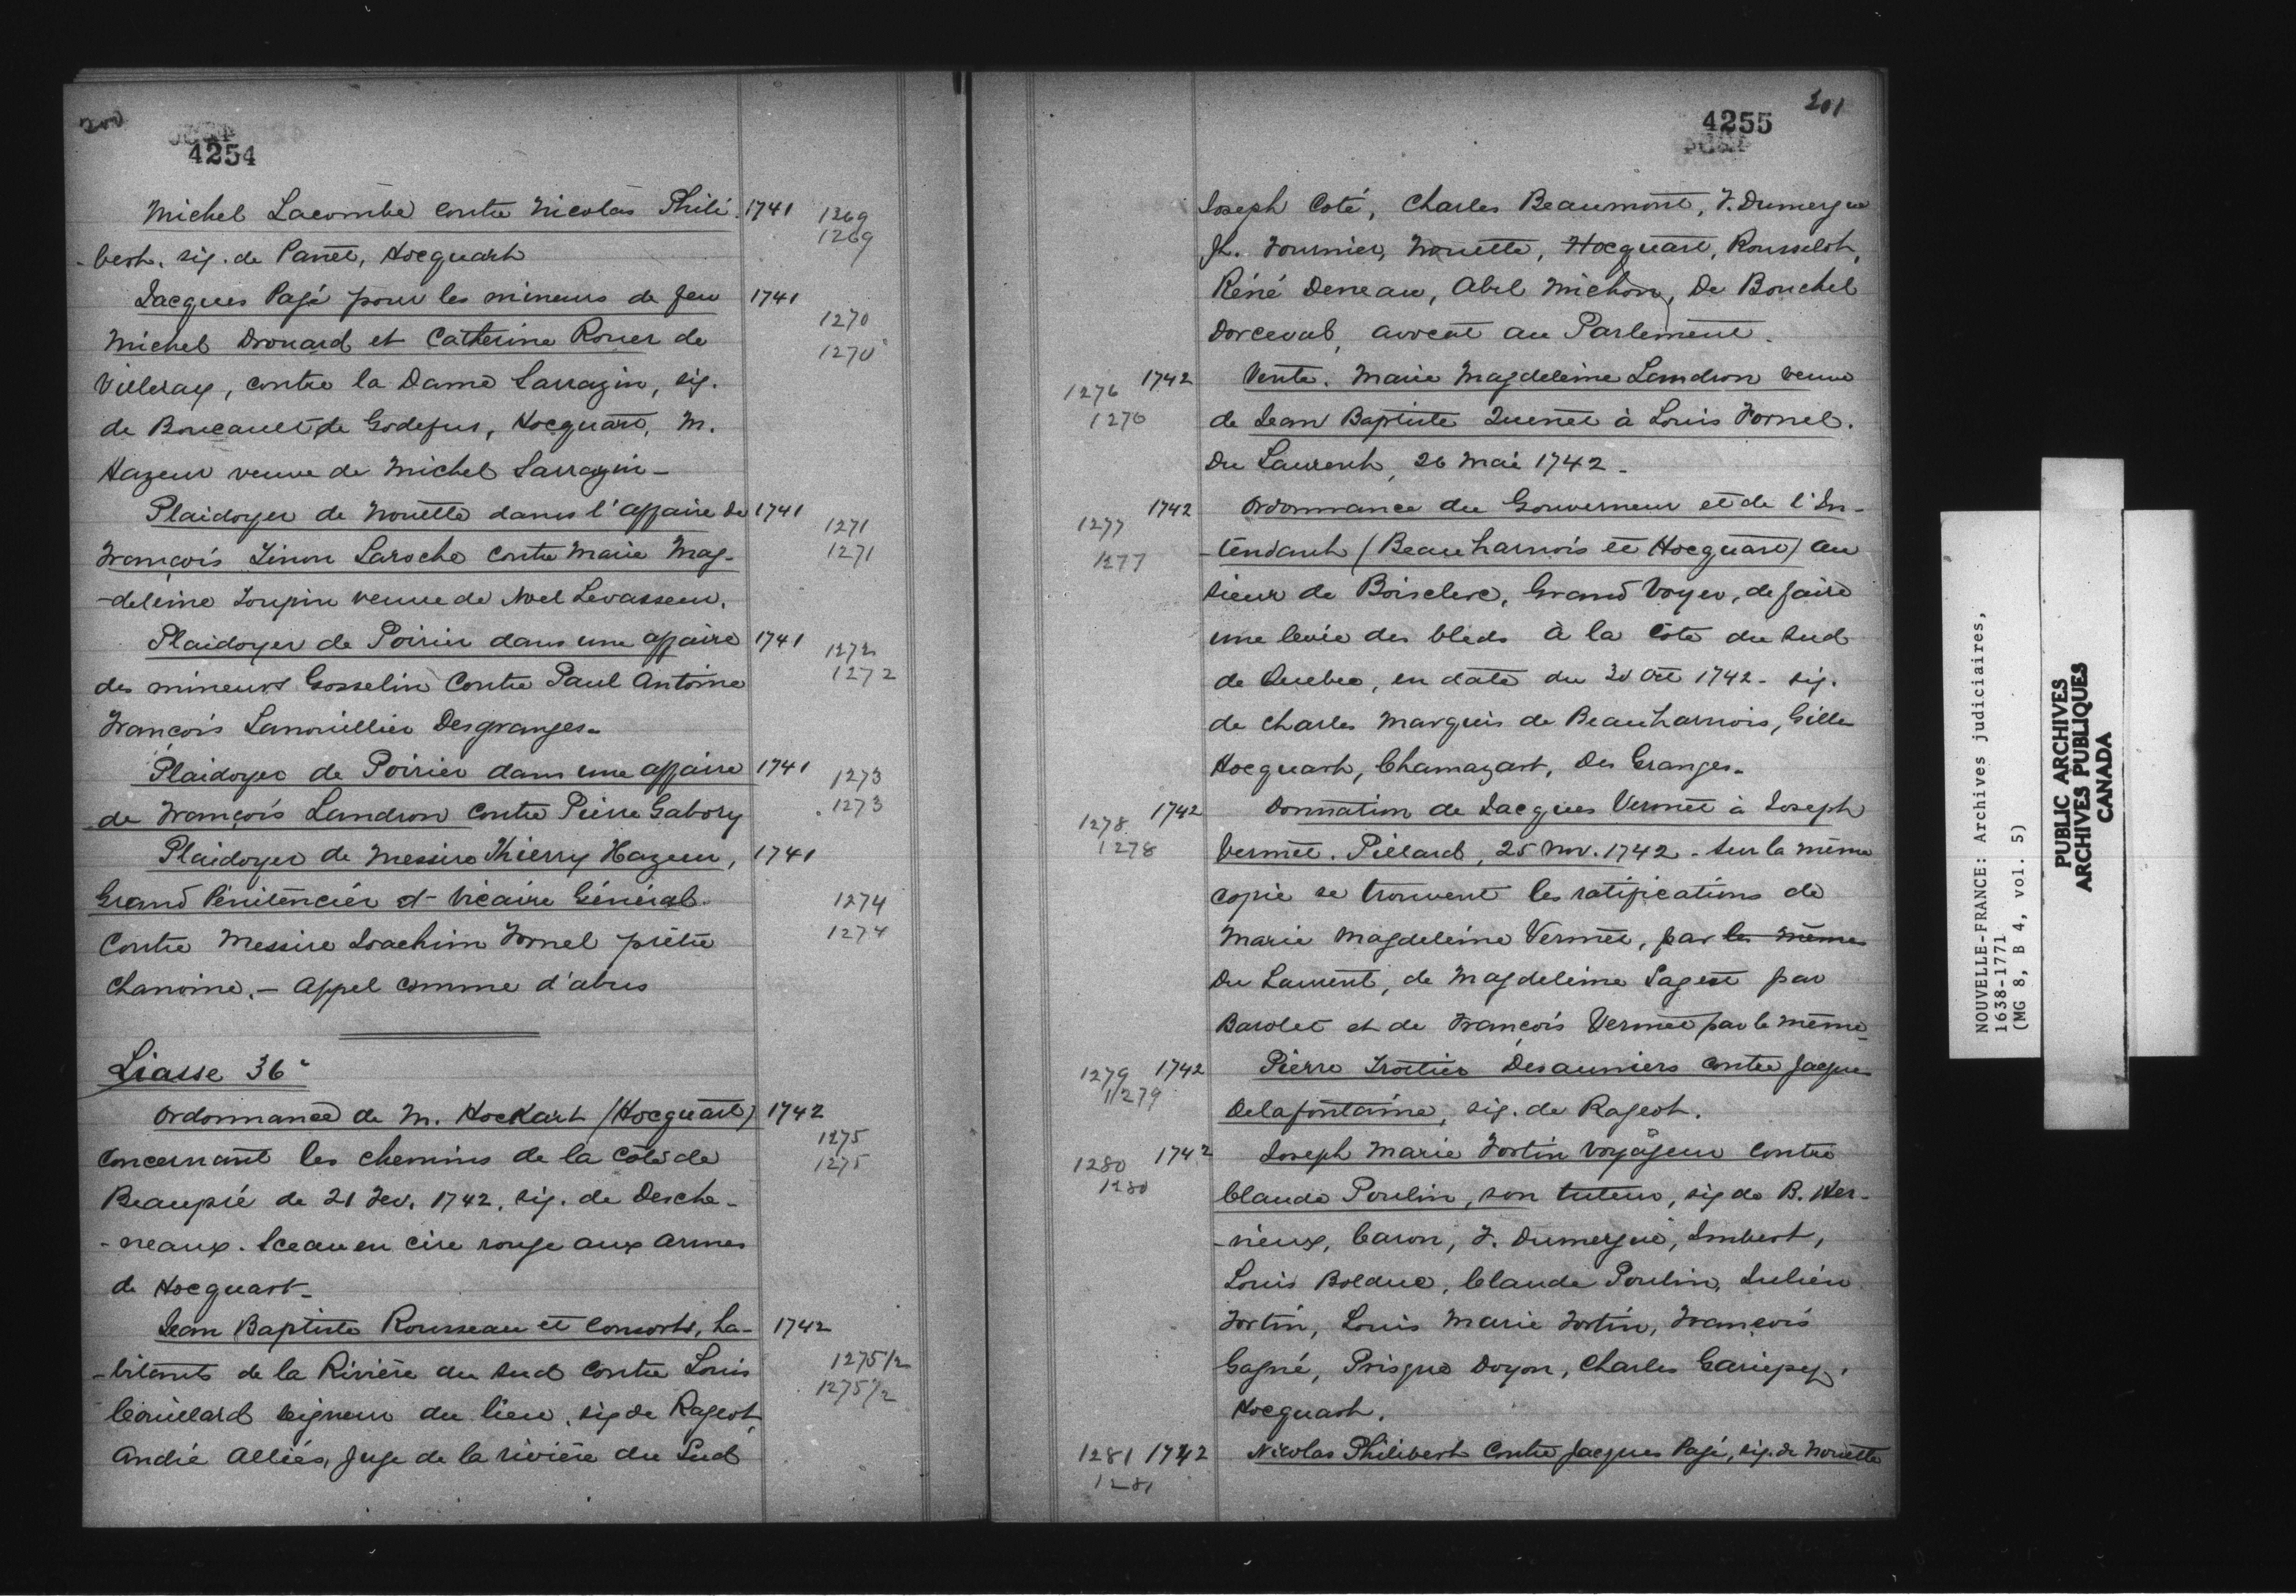 200
4254
Michel Lacombe contre Nicolas Phili- 1741 1269
-bert. sig. de Panet, Hocquart 1269
Jacques Pagé pour les mineurs de feu 1741
1270
Michel Drouard et Catherine Rouer de
1270
Villeray, contre la Dame Sarrazin, sig.
de Boucault de Godefus, Hocquart, M.
Hazeur veuve de Michel Sarrazin-
Plaidoyer de Nouette dans l'affaire de 1741
1271
François Tinon Laroche contre Marie Mag- 1271
-deleine Toupin veuve de Noel Levasseur.
Plaidoyer de Poirier dans une affaire 1741 1272
des mineurs Gosselin contre Paul Antoine 1272
François Lanouillier Desgranges.
Plaidoyer de Poirier dans une affaire 1741 1273
de François Landron contre Pierre Gabory 1273
Plaidoyer de Messire Thierry Hazeur, 1741
Grand Pénitencier et Vicaire Général 1274
contre Messire Joachim Fornel prêtre 1274
Chanoine. - Appel comme d'abus
Liasse 36e
Ordonnance de M. Hockart (Hocquart) 1742
1275
concernant les chemins de la Côte de 1275
Beaupré de 21 Fev. 1742. sig. de Desche-
-neaux. Sceau en cire rouge aux armes
de Hocquart-
Jean Baptiste Rousseau et consorts, ha- 1742
-bitants de la Rivière du Sud contre Louis 1275 1/2
1275 1/2
Couillard seigneur du lieu, sig de Rageot,
André Alliés, Juge de la rivière du Sud
201
4255
Joseph Coté, Charles Beaumont, F. Dumergue
Jh. Fournier, Nouette, Hocquart, Rousselot,
Réné Deneau, Abel Michon, De Bouchel
Dorceval, avocat au Parlement.
1276 1742 Vente. Marie Magdeleine Landron veuve
1276 de Jean Baptiste Quenet à Louis Fornel.
Du Laurent, 26 Mai 1742-
1277 1742 Ordonnance du Gouverneur et de l'In-
1277 -tendant (Beauharnois et Hocquart) au
sieur de Boisclerc, Grand Voyer, de faire
une levée des bleds à la Côte du Sud
de Quebec, en date du 30 Oct 1742- sig.
de Charles Marquis de Beauharnois, Gille
Hocquart, Chamazart, Des Granges-
1278 1742 Donnation de Jacques Vermet à Joseph
1278 Vermet. Pillard, 25 Nov. 1742 - Sur la même
copie se trouvent les ratifications de
Marie Magdeleine Vermet, par les mêmes
Du Laurent, de Magdeleine Pageot par
Barolet et de François Vermet par le même-
1279 1742 Pierre Trotier Desauniers contre Jacques
1279 Delafontaine, sig. de Rageot.
1280 1742 Joseph Marie Fortin voyageur contre
1280 Claude Poulin, son tuteur, sig de B. Her-
-vieux, Caron, F. Dumergue, Imbert,
Louis Bolduc, Claude Poulin, Julien
Fortin, Louis Marie Fortin, François
Gagné, Prisque Doyon, Charles Gariepy,
Hocquart.
1281 1742 Nicolas Philibert contre Jacques Pagé, sig. de Nouette
1281
NOUVELLE-FRANCE: Archives judiciaires,
1638-1771
(MG 8, B 4, vol. 5)
PUBLIC ARCHIVES
ARCHIVES PUBLIQUES
CANADA